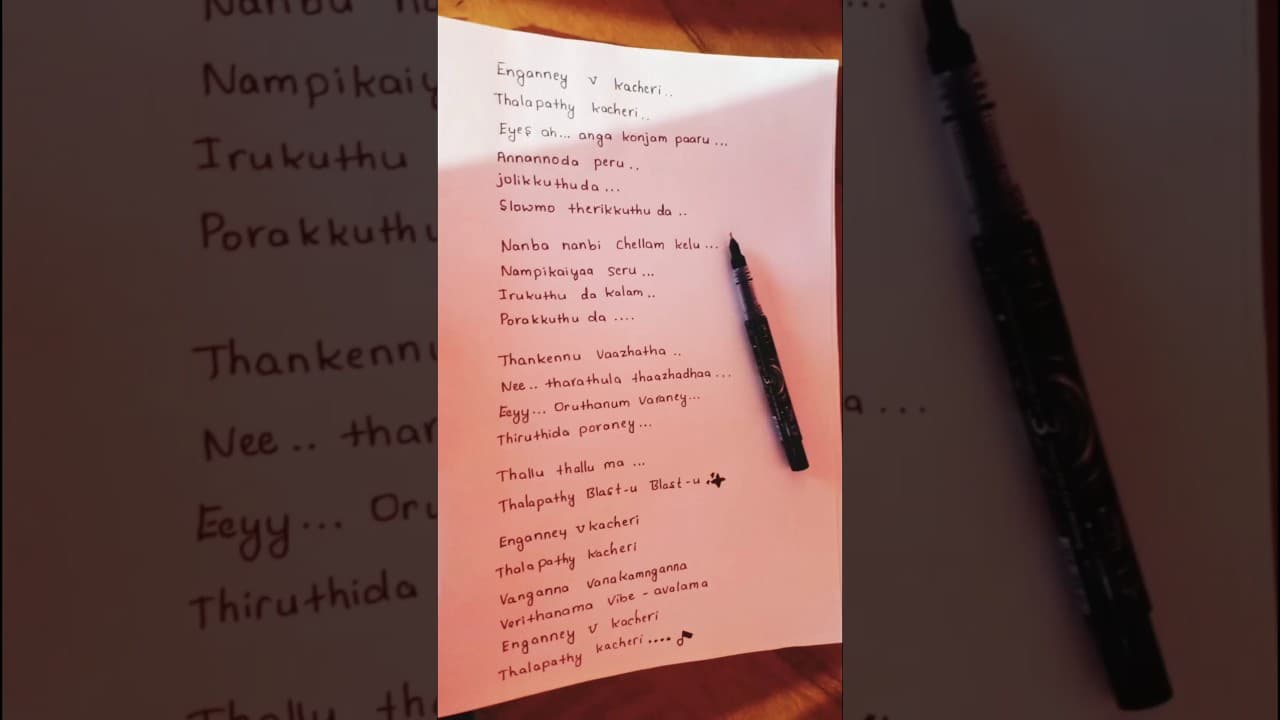 Enganney v kacheri..
Thalapathy kacheri..
Eyes ah... anga konjam paaru...
Annannoda peru..
jolikkuthuda...
Slowmo therikkuthu da..
Nanba nanbi chellam kelu...
Nampikaiyaa seru...
Irukuthu da kalam..
Porakkuthu da ....
Thankennu vaazhatha ..
Nee.. tharathula thaazhadhaa...
Eeyy... Oruthanum varaney...
Thiruthida poraney...
Thallu thallu ma ...
Thalapathy Blast-u Blast-u
Enganney v kacheri
Thalapathy kacheri
Vanganna vanakamnganna
Verithanama vibe - avalama
Enganney v kacheri
Thalapathy kacheri....